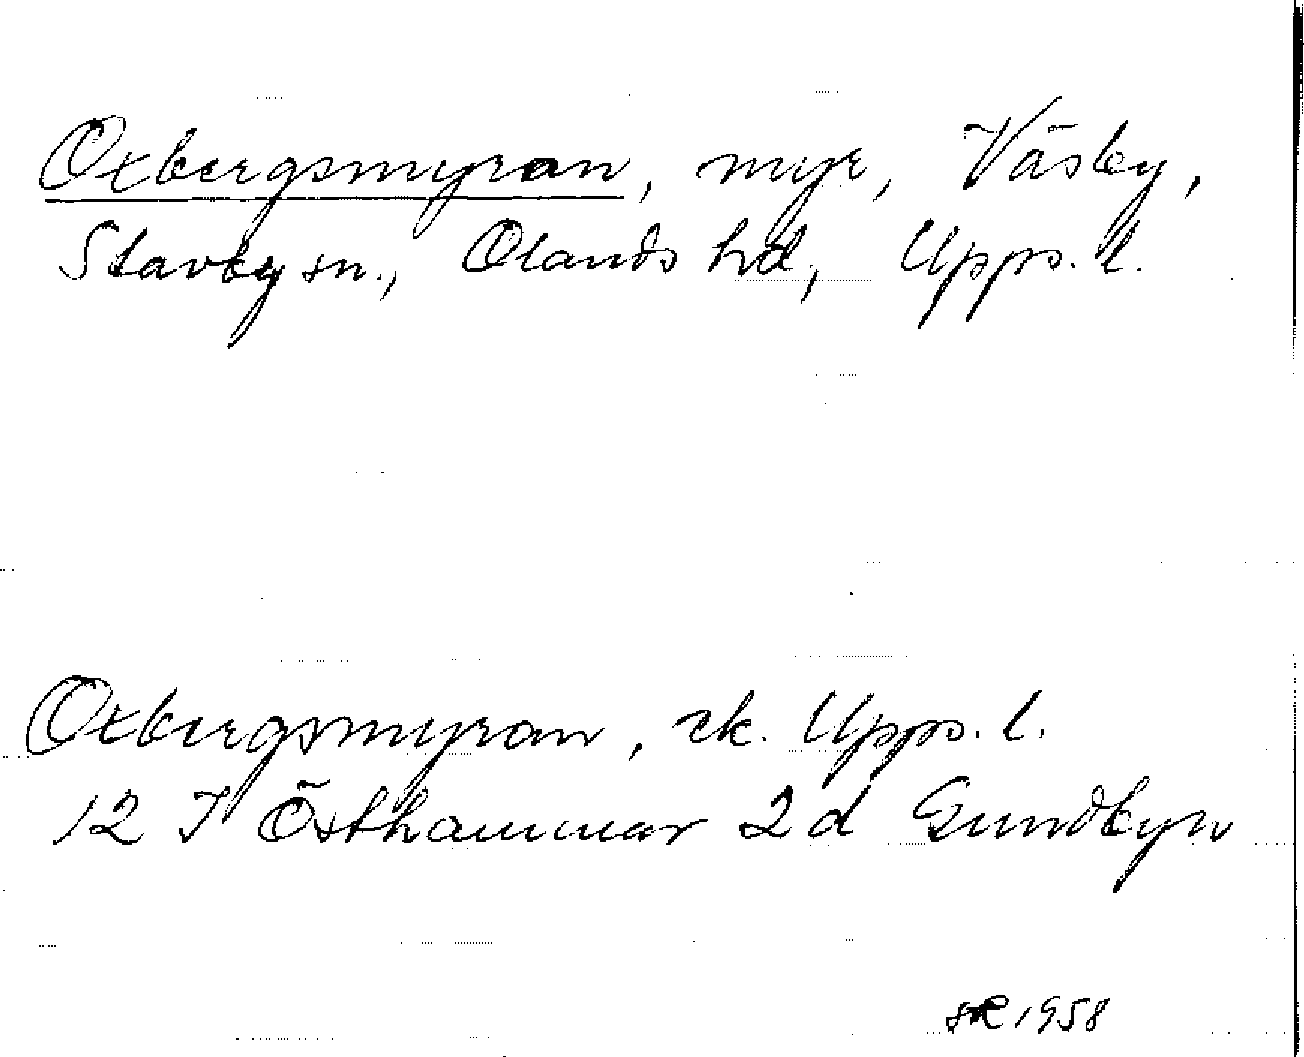 Oxbergsmyran, myr, Väsby,
Stavby sn., Olands hd, Upps. l.
Oxbergsmyran, ek. Upps. l.
12 I Östhammar 2d Gundbyn
1958